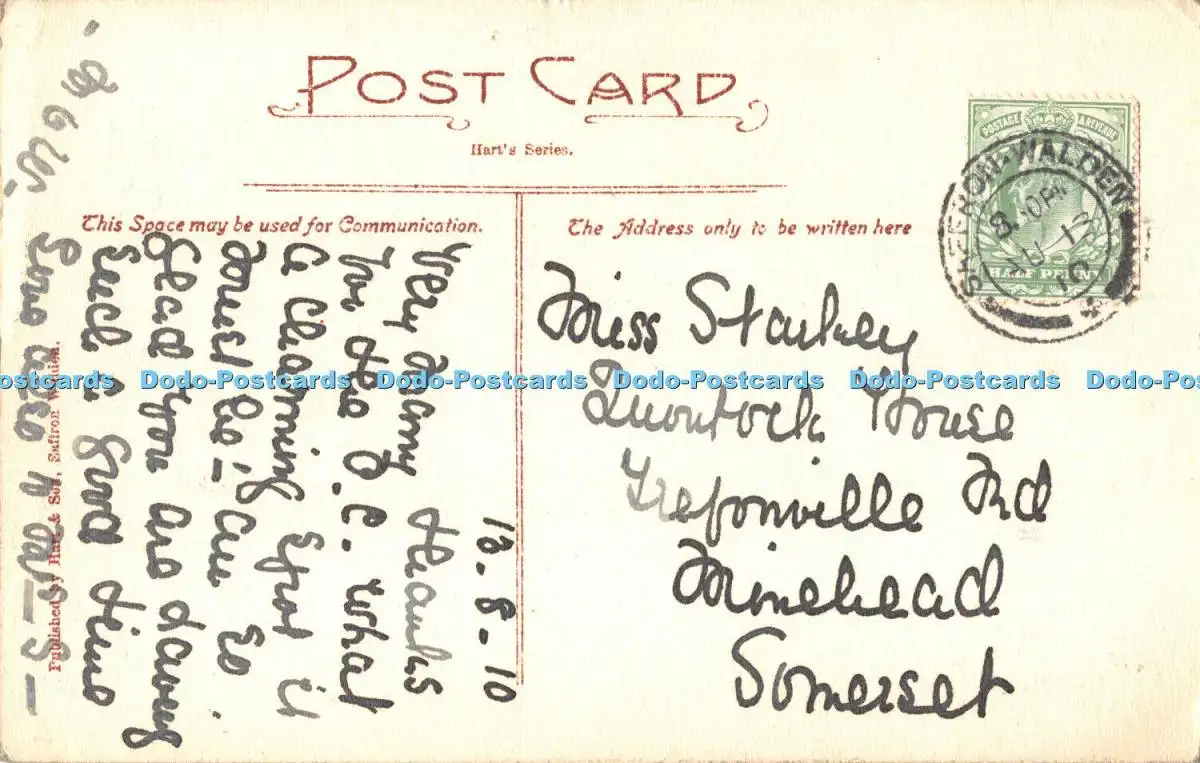 POST CARD
Hart's Series.
This Space may be used for Communication.
The Address only to be written here
POSTAGE & REVENUE
HALF PENNY
SAFFRON-WALDEN
10
13.8-10
Very many thanks
for the P.C. what
a charming spot it
must be - am so
glad you are having
such a good time
Love
Miss Starkey
Quontock House
Tregonville Rd
Minehead
Somerset
Published by Hart & Son, Saffron Walden.
Dodo-Postcards Dodo-Postcards Dodo-Postcards Dodo-Postcards Dodo-Postcards Dodo-Postcards